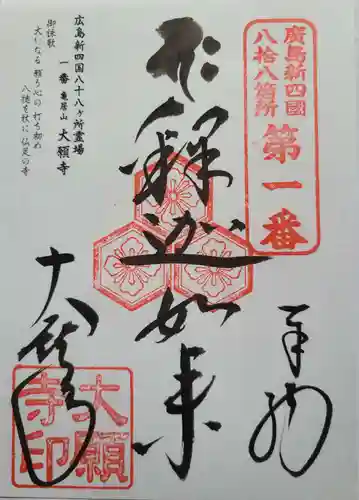 廣島新四國
八拾八箇所
第一番
奉拝
釋迦如来
大願寺
広島新四国八十八ヶ所霊場
一番 亀居山 大願寺
御詠歌
大いなる 願う心の 打ち初め
八穂を杖に 仏足の寺
大願
寺印